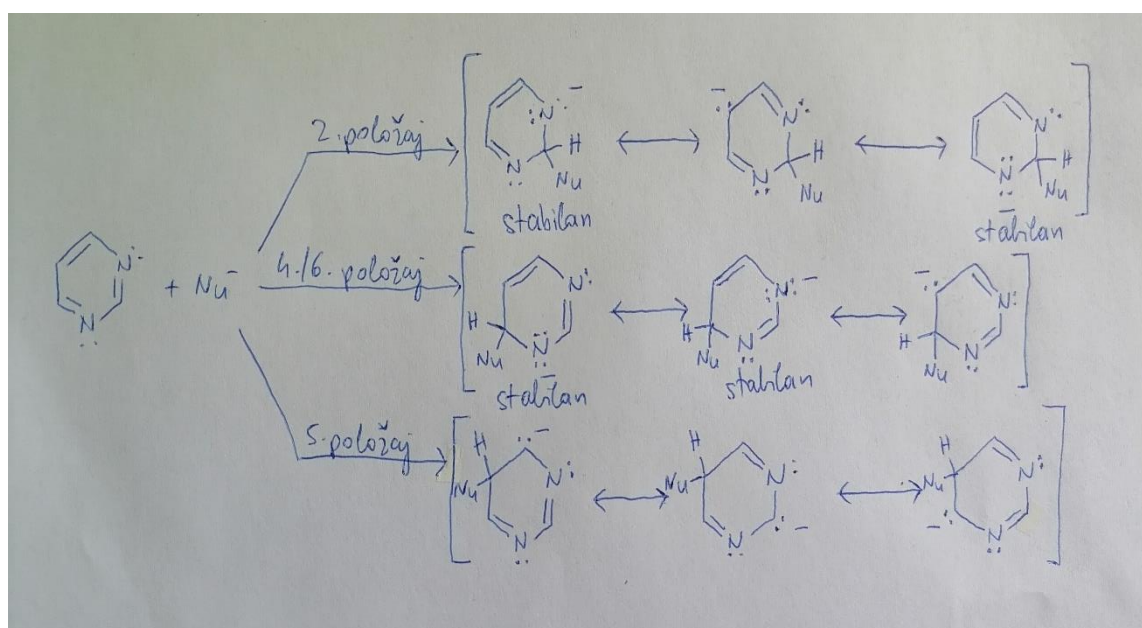 2. položaj
N N H Nu
stabilan
N N H Nu
N N H Nu
stabilan
N N + Nu⁻
4./6. položaj
H Nu N N
stabilan
H Nu N N
stabilan
H Nu N N
5. položaj
H Nu N N
H Nu N N
H Nu N N